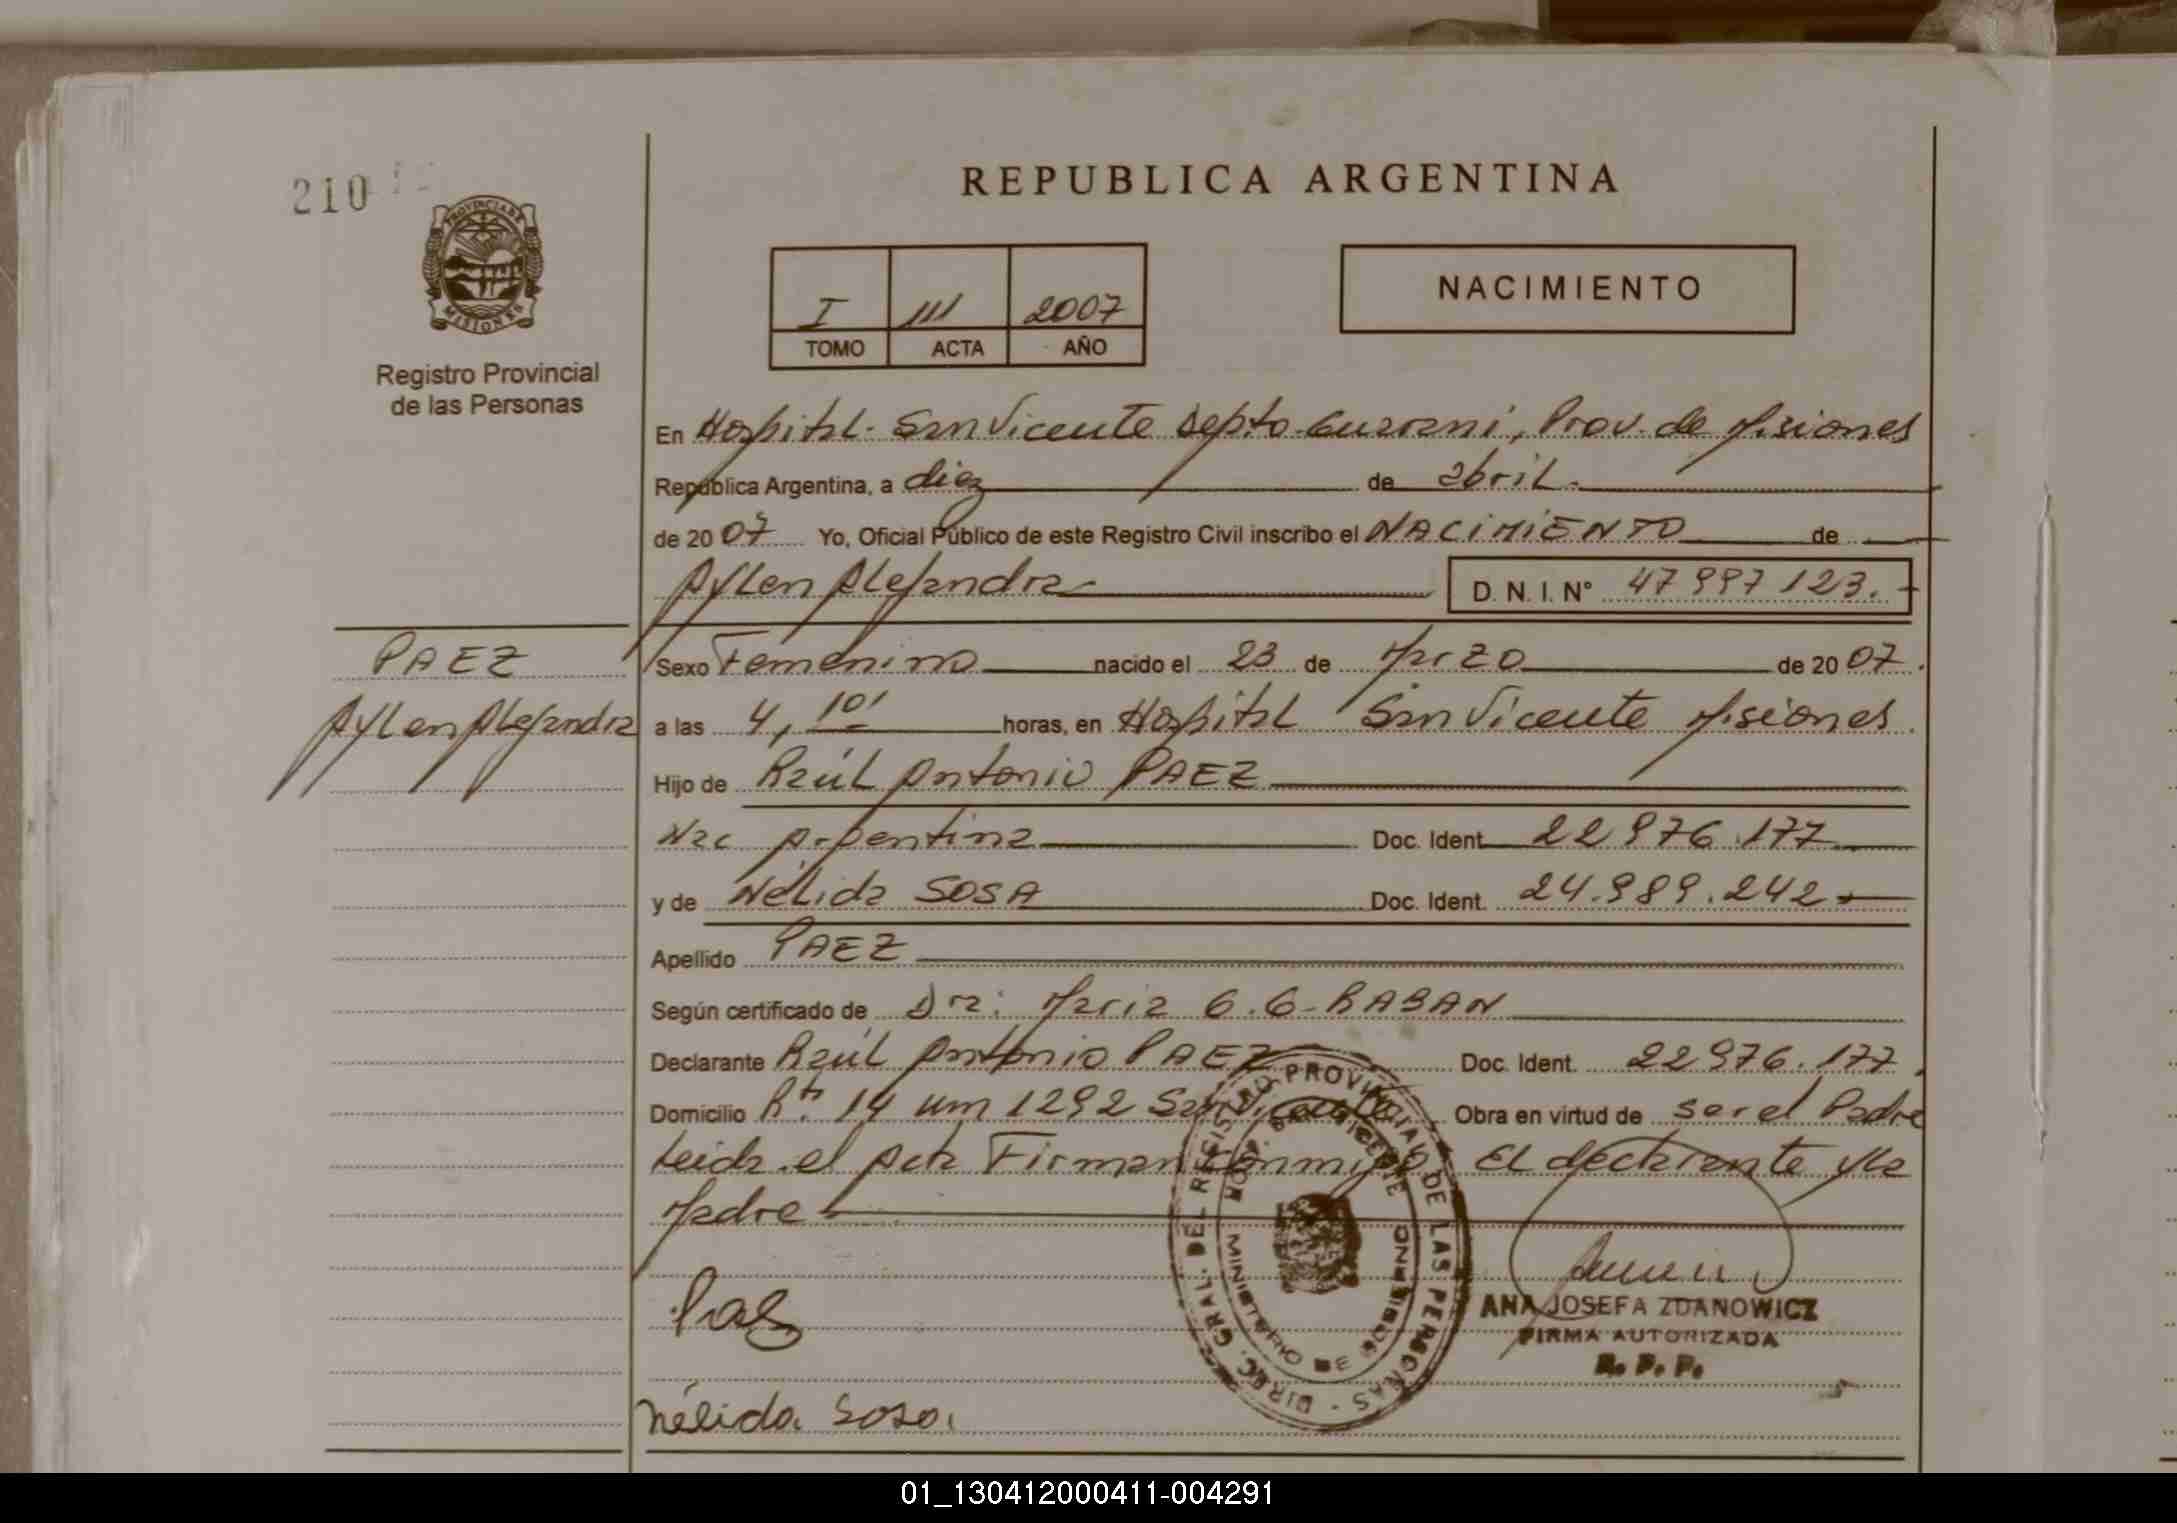 210
PROVINCIA DE
MISIONES
Registro Provincial
de las Personas
REPUBLICA ARGENTINA
I 111 2007
TOMO ACTA AÑO
NACIMIENTO
En Hospital San Vicente Depto. Guarani, Prov. de Misiones
Republica Argentina, a diez de abril.
de 2007 Yo, Oficial Público de este Registro Civil inscribo el NACIMIENTO de
Aylen Alejandra D. N. I. N° 47 997 123.
PAEZ
Aylen Alejandra
Sexo Femenino nacido el 23 de Marzo de 2007.
a las 4, 10' horas, en Hospital San Vicente Misiones.
Hijo de Raúl Antonio PAEZ
Nac Argentina Doc. Ident. 22 976.177
y de Nélida SOSA Doc. Ident. 24.989.242
Apellido PAEZ
Según certificado de Dra: Maria G. G. RABAN
Declarante Raúl Antonio PAEZ Doc. Ident. 22 976.177
Domicilio Rta 14 Km 1292 San Vicente Obra en virtud de ser el Padre
Leida el Acta Firman Conmigo El declarante y la
Madre
Paez
Nélida Sosa
DIREC. GRAL. DEL REGISTRO PROVINCIAL DE LAS PERSONAS
HOSP. SAN VICENTE
MINISTERIO DE GOBIERNO
ANA JOSEFA ZDANOWICZ
FIRMA AUTORIZADA
R. P. P.
01_130412000411-004291